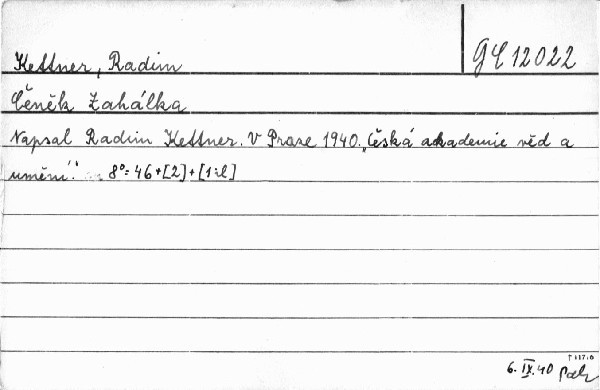 Kettner, Radim
GE 12022
Čeněk Zahálka
Napsal Radim Kettner. V Praze 1940. „Česká akademie věd a
umění". 8° 46+[2]+[1:l]
6. IX. 40